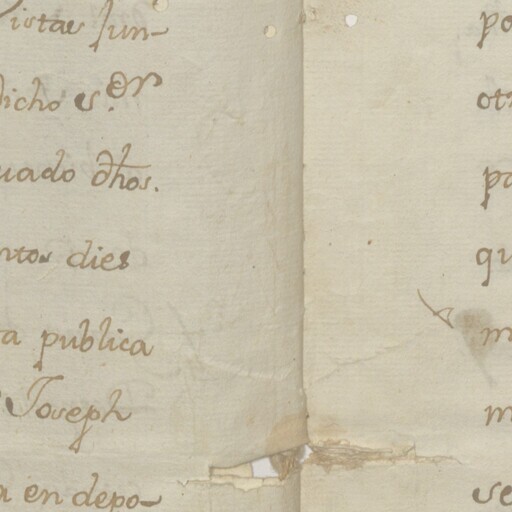 Vistas Jun-
dicho s.or
uado dhos.
ntos dies
ra publica
Joseph
a en depo-
po
otr
pa
qu
m
m
se